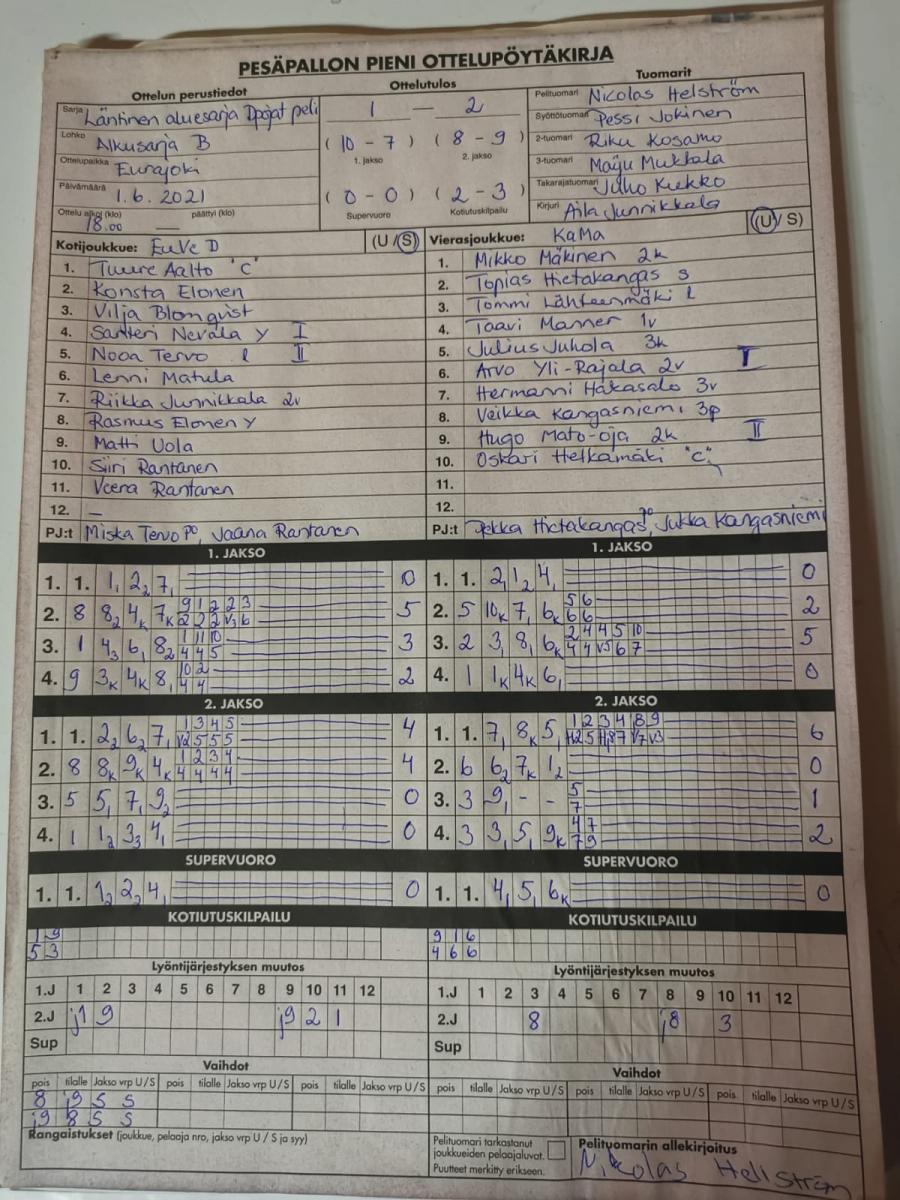 PESÄPALLON PIENI OTTELUPÖYTÄKIRJA
Ottelun perustiedot
Ottelutulos
Tuomarit
Sarja Läntinen aluesarja Dpojat peli
1 — 2
Pelituomari Nicolas Helström
Lohko Alkusarja B
(10 - 7) (8 - 9)
1. jakso 2. jakso
Syöttötuomari Pessi Jokinen
2-tuomari Riku Kosamo
Ottelupaikka Eurajoki
3-tuomari Maiju Mukkala
Päivämäärä 1.6.2021
(0 - 0) (2 - 3)
Supervuoro Kotiutuskilpailu
Takarajatuomari Juho Kukko
Ottelu alkoi (klo) 18.00 päättyi (klo) —
Kirjuri Aila Junnikkala
Kotijoukkue: EuVe D (U / S)
Vierasjoukkue: KaMa (U / S)
1. Tuure Aalto "C"
2. Konsta Elonen
3. Vilja Blomqvist
4. Santteri Nevala Y I
5. Nooa Tervo l II
6. Lenni Matula
7. Riikka Junnikkala 2v
8. Rasmus Elonen Y
9. Matti Uola
10. Siiri Rantanen
11. Veera Rantanen
12. —
PJ:t Miska Tervo PO, Jaana Rantanen
1. Mikko Mäkinen 2k
2. Topias Hietakangas s
3. Tommi Lähteenmäki l
4. Taavi Manner 1v
5. Julius Juhola 3k
6. Arvo Yli-Rajala 2v I
7. Hermanni Hakasalo 3v
8. Veikka Kangasniemi 3p
9. Hugo Mato-oja 2k II
10. Oskari Helkamäki "C"
11.
12.
PJ:t Pekka Hietakangas PO, Jukka Kangasniemi
1. JAKSO
1. 1. 1, 2₂ 7₁ 0
2. 8 8₂ 4k 7k 9 1 2 2 3 5
2 2 2 v3 6
3. 1 4₃ 6₁ 8₂ 1 11 10 3
4 4 5
4. 9 3k 4k 8₁ 10 2 2
4 4
1. JAKSO
1. 1. 2₁ 1₂ 4₁ 0
2. 5 10k 7₁ 6k 5 6 2
6 6
3. 2 3₁ 8₁ 6k 2 4 4 5 10 5
4 4 v5 6 7
4. 1 1k 4k 6₁ 0
2. JAKSO
1. 1. 2₂ 6₂ 7₁ 1 3 4 5 4
v2 5 5 5
2. 8 8k 9k 4k 1 2 3 4 4
4 4 4 4
3. 5 5₁ 7₁ 9₂ 0
4. 1 1₂ 3₃ 4₁ 0
2. JAKSO
1. 1. 7₁ 8k 5₁ 1 2 3 4 8 9 6
2. 6 6₂ 7k 1₂ 0
3. 3 9₁ - - 5 1
7
4. 3 3₁ 5₁ 9k 4 7 2
7 9
SUPERVUORO
1. 1. 1₂ 2₂ 4₁ 0
SUPERVUORO
1. 1. 4₁ 5₁ 6k 0
KOTIUTUSKILPAILU
1 9
5 3
KOTIUTUSKILPAILU
9 1 6
4 6 6
Lyöntijärjestyksen muutos
1.J 1 2 3 4 5 6 7 8 9 10 11 12
2.J j1 9 j9 2 1
Sup
Lyöntijärjestyksen muutos
1.J 1 2 3 4 5 6 7 8 9 10 11 12
2.J 8 j8 3
Sup
Vaihdot
pois tilalle Jakso vrp U/S pois tilalle Jakso vrp U/S pois tilalle Jakso vrp U/S
8 j9 S S
j9 8 S S
Vaihdot
pois tilalle Jakso vrp U/S pois tilalle Jakso vrp U/S pois tilalle Jakso vrp U/S
Rangaistukset (joukkue, pelaaja nro, jakso vrp U / S ja syy)
Pelituomari tarkastanut
joukkueiden pelaajaluvat.
Puutteet merkitty erikseen.
Pelituomarin allekirjoitus
Nikolas Hellström